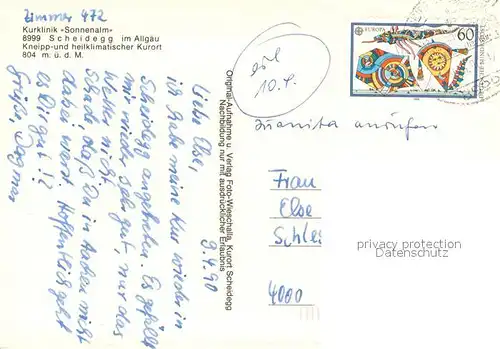 Zimmer 472
Kurklinik »Sonnenalm«
8999 Scheidegg im Allgäu
Kneipp- und heilklimatischer Kurort
804 m. ü. d. M.
9.4.90
Liebe Else,
ich habe meine Kur wieder in
Scheidegg angetreten. Es gefällt
mir wieder sehr gut, nur das
Wetter nicht.
Schade, daß Du in Aachen nicht
dabei warst. Hoffentlich geht
es Dir gut!?
Grüße, Dagmar
Original-Aufnahme u. Verlag Foto-Wieschalla, Kurort Scheidegg
Nachbildung nur mit ausdrücklicher Erlaubnis
10.4.
EUROPA
60
Juanita anrufen
Frau
Else
Schles
4000
privacy protection
Datenschutz